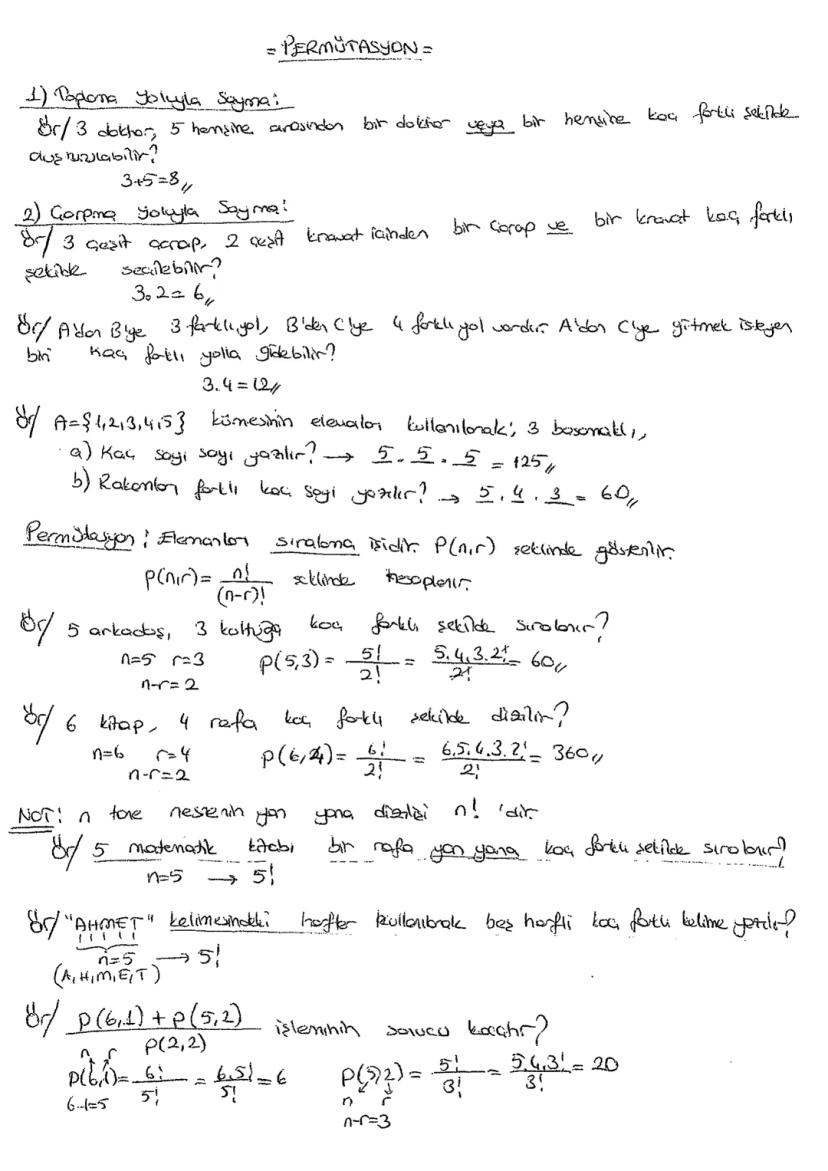 = PERMÜTASYON =
1) Toplama Yoluyla Sayma:
Ör/ 3 doktor, 5 hemşire arasından bir doktor veya bir hemşire kaç farklı şekilde
oluşturulabilir?
3+5=8//
2) Çarpma Yoluyla Sayma:
Ör/ 3 çeşit çorap, 2 çeşit kravat içinden bir çorap ve bir kravat kaç farklı
şekilde seçilebilir?
3.2=6//
Ör/ A'dan B'ye 3 farklı yol, B'den C'ye 4 farklı yol vardır. A'dan C'ye gitmek isteyen
biri kaç farklı yolla gidebilir?
3.4=12//
Ör/ A={1,2,3,4,5} kümesinin elemanları kullanılarak; 3 basamaklı,,
a) Kaç sayı sayı yazılır? → 5.5.5 = 125//
b) Rakamları farklı kaç sayı yazılır? → 5.4.3 = 60//
Permütasyon: Elemanları sıralama işidir. P(n,r) şeklinde gösterilir.
P(n,r)= n!/(n-r)! şeklinde hesaplanır.
Ör/ 5 arkadaş, 3 koltuğa kaç farklı şekilde sıralanır?
n=5 r=3 P(5,3) = 5!/2! = 5.4.3.2!/2! = 60//
n-r=2
Ör/ 6 kitap, 4 rafa kaç farklı şekilde dizilir?
n=6 r=4 P(6,4)= 6!/2! = 6.5.4.3.2!/2! = 360//
n-r=2
NOT: n tane nesnenin yan yana dizilişi n! 'dir.
Ör/ 5 matematik kitabı bir rafa yan yana kaç farklı şekilde sıralanır?
n=5 → 5!
Ör/ "AHMET" kelimesindeki harfler kullanılarak beş harfli kaç farklı kelime yazılır?
n=5 → 5!
(A,H,M,E,T)
Ör/ P(6,1) + P(5,2) / P(2,2) işleminin sonucu kaçtır?
n r
P(6,1)= 6!/5! = 6.5!/5! = 6 P(5,2) = 5!/3! = 5.4.3!/3! = 20
6-1=5 n r
n-r=3